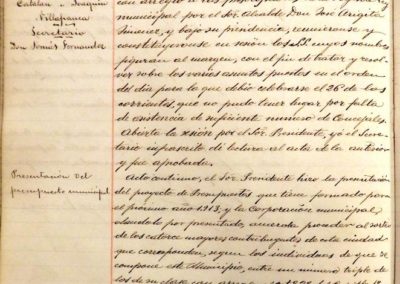 Catalan - Joaquin
Villafranca
Secretario
Don Tomás Fernandez
Presentación del
presupuesto municipal
con arreglo a las
municipal por el Sor. Alcalde Don José Angita
Jimenez, y bajo su presidencia, reunieronse y
constituyeronse en sesión los SS. cuyos nombres
figuran al margen, con el fin de tratar y resol-
ver sobre los varios asuntos puestos en el orden
del día para la que debió celebrarse el 26 de los
corrientes, que no pudo tener lugar por falta
de asistencia de suficiente número de Concejales.
Abierta la sesión por el Sor. Presidente, yo el Secre-
tario infrascrito dí lectura al acta de la anterior
y fue aprobada.
Acto continuo, el Sor. Presidente hizo la presentación
del proyecto de Presupuestos que tiene formado para
el próximo año 1913, y la Corporación municipal,
dandolo por presentado, acuerda proceder al sorteo
de los catorce mayores contribuyentes de esta ciudad
que corresponden, según los individuos de que se
compone este Municipio, entre un número triple de
los de su clase con arreglo